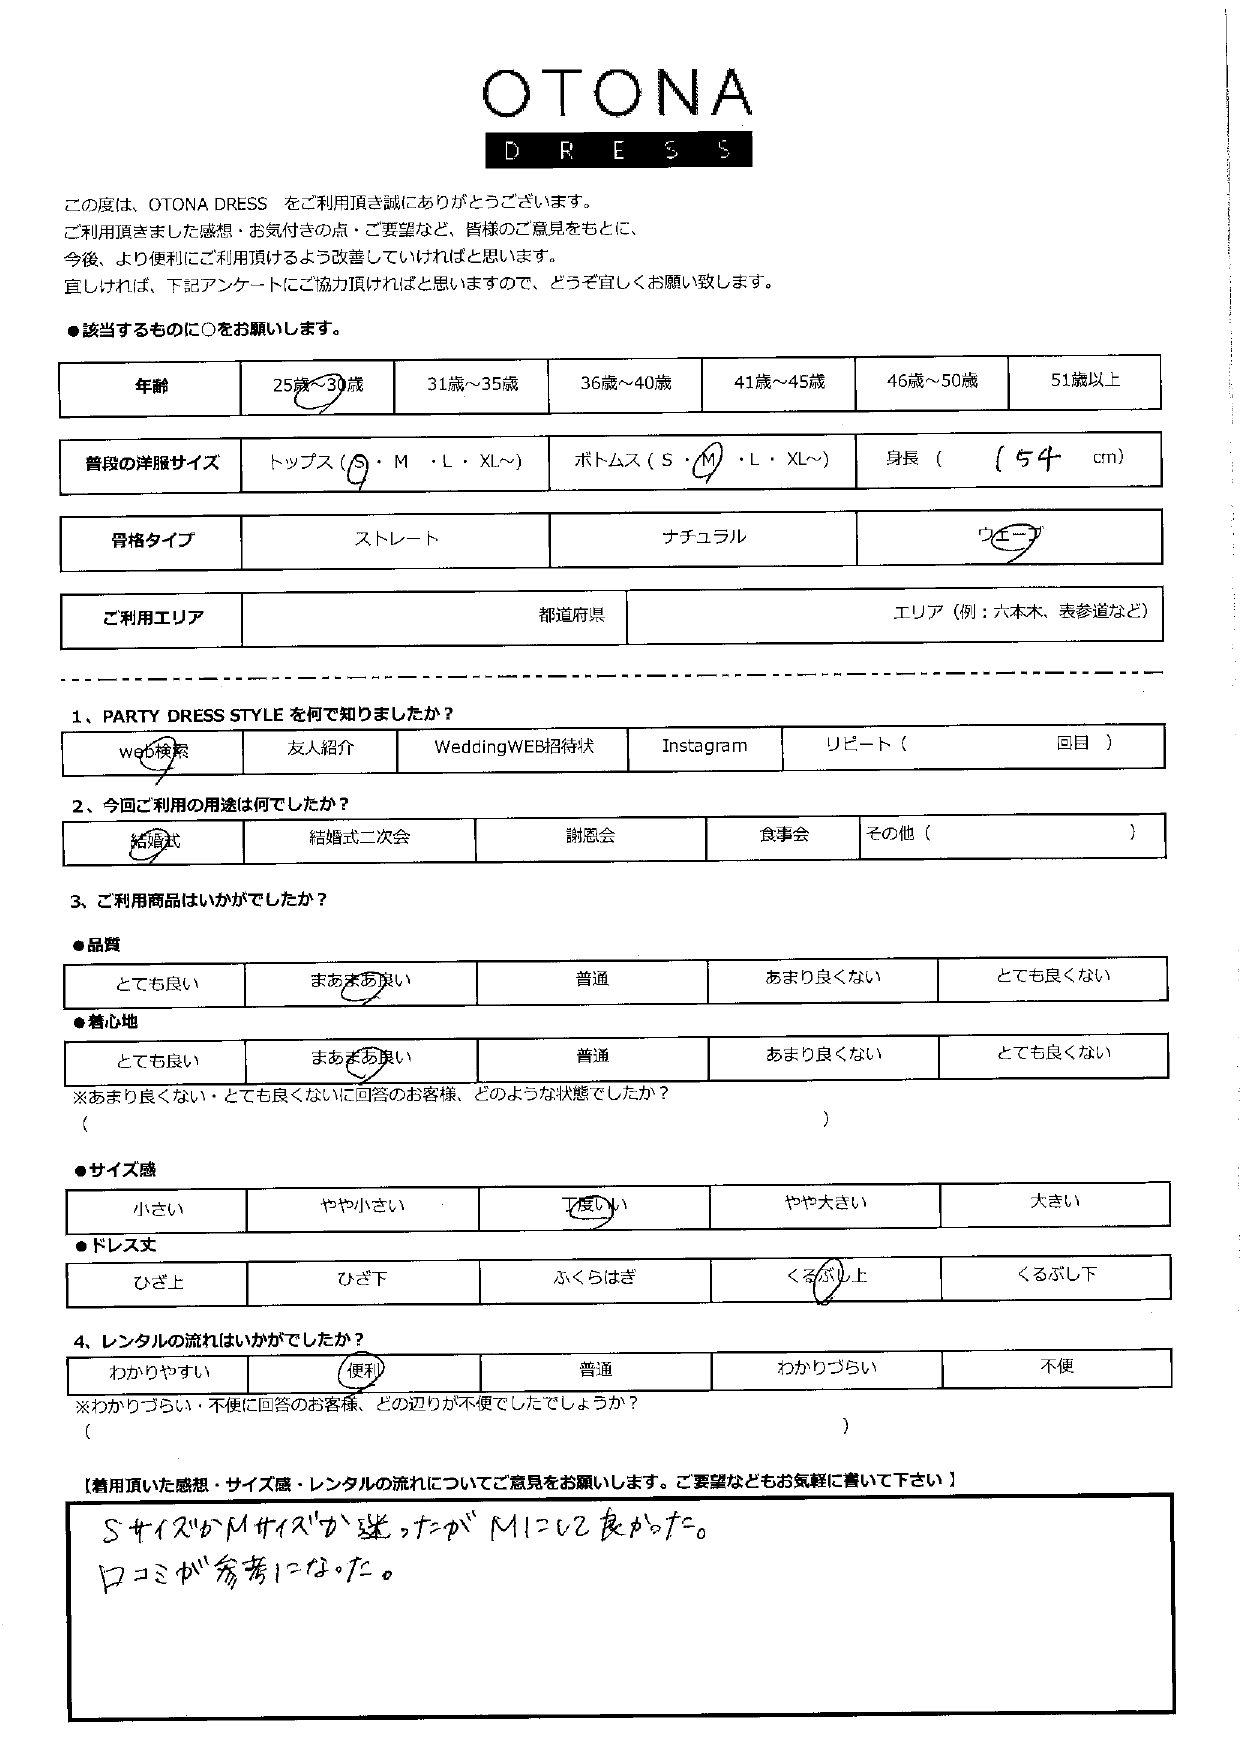 OTONA
DRESS
この度は、OTONA DRESS をご利用頂き誠にありがとうございます。
ご利用頂きました感想・お気付きの点・ご要望など、皆様のご意見をもとに、
今後、より便利にご利用頂けるよう改善していければと思います。
宜しければ、下記アンケートにご協力頂ければと思いますので、どうぞ宜しくお願い致します。
●該当するものに○をお願いします。
年齢 25歳～30歳 31歳～35歳 36歳～40歳 41歳～45歳 46歳～50歳 51歳以上
普段の洋服サイズ トップス ( S ・ M ・ L ・ XL～) ボトムス ( S ・ M ・ L ・ XL～) 身長 ( 154 cm)
骨格タイプ ストレート ナチュラル ウェーブ
ご利用エリア 都道府県 エリア（例：六本木、表参道など）
1、PARTY DRESS STYLE を何で知りましたか？
web検索 友人紹介 WeddingWEB招待状 Instagram リピート（ 回目 ）
2、今回ご利用の用途は何でしたか？
結婚式 結婚式二次会 謝恩会 食事会 その他（ ）
3、ご利用商品はいかがでしたか？
●品質
とても良い まあまあ良い 普通 あまり良くない とても良くない
●着心地
とても良い まあまあ良い 普通 あまり良くない とても良くない
※あまり良くない・とても良くないに回答のお客様、どのような状態でしたか？
( )
●サイズ感
小さい やや小さい 丁度いい やや大きい 大きい
●ドレス丈
ひざ上 ひざ下 ふくらはぎ くるぶし上 くるぶし下
4、レンタルの流れはいかがでしたか？
わかりやすい 便利 普通 わかりづらい 不便
※わかりづらい・不便に回答のお客様、どの辺りが不便でしたでしょうか？
( )
【着用頂いた感想・サイズ感・レンタルの流れについてご意見をお願いします。ご要望などもお気軽に書いて下さい 】
SサイズかMサイズか迷ったがMにして良かった。
口コミが参考になった。